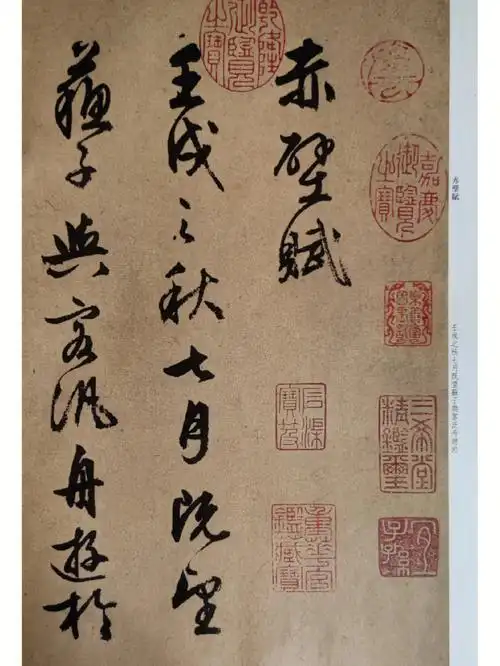 赤壁賦
壬戌之秋七月既望
蘇子與客汎舟遊於
乾隆御覽之寶
嘉慶御覽之寶
石渠寶笈
三希堂精鑑璽
重華宮鑑藏寶
宜子孫
赤壁賦
壬戌之秋七月既望蘇子與客泛舟遊於